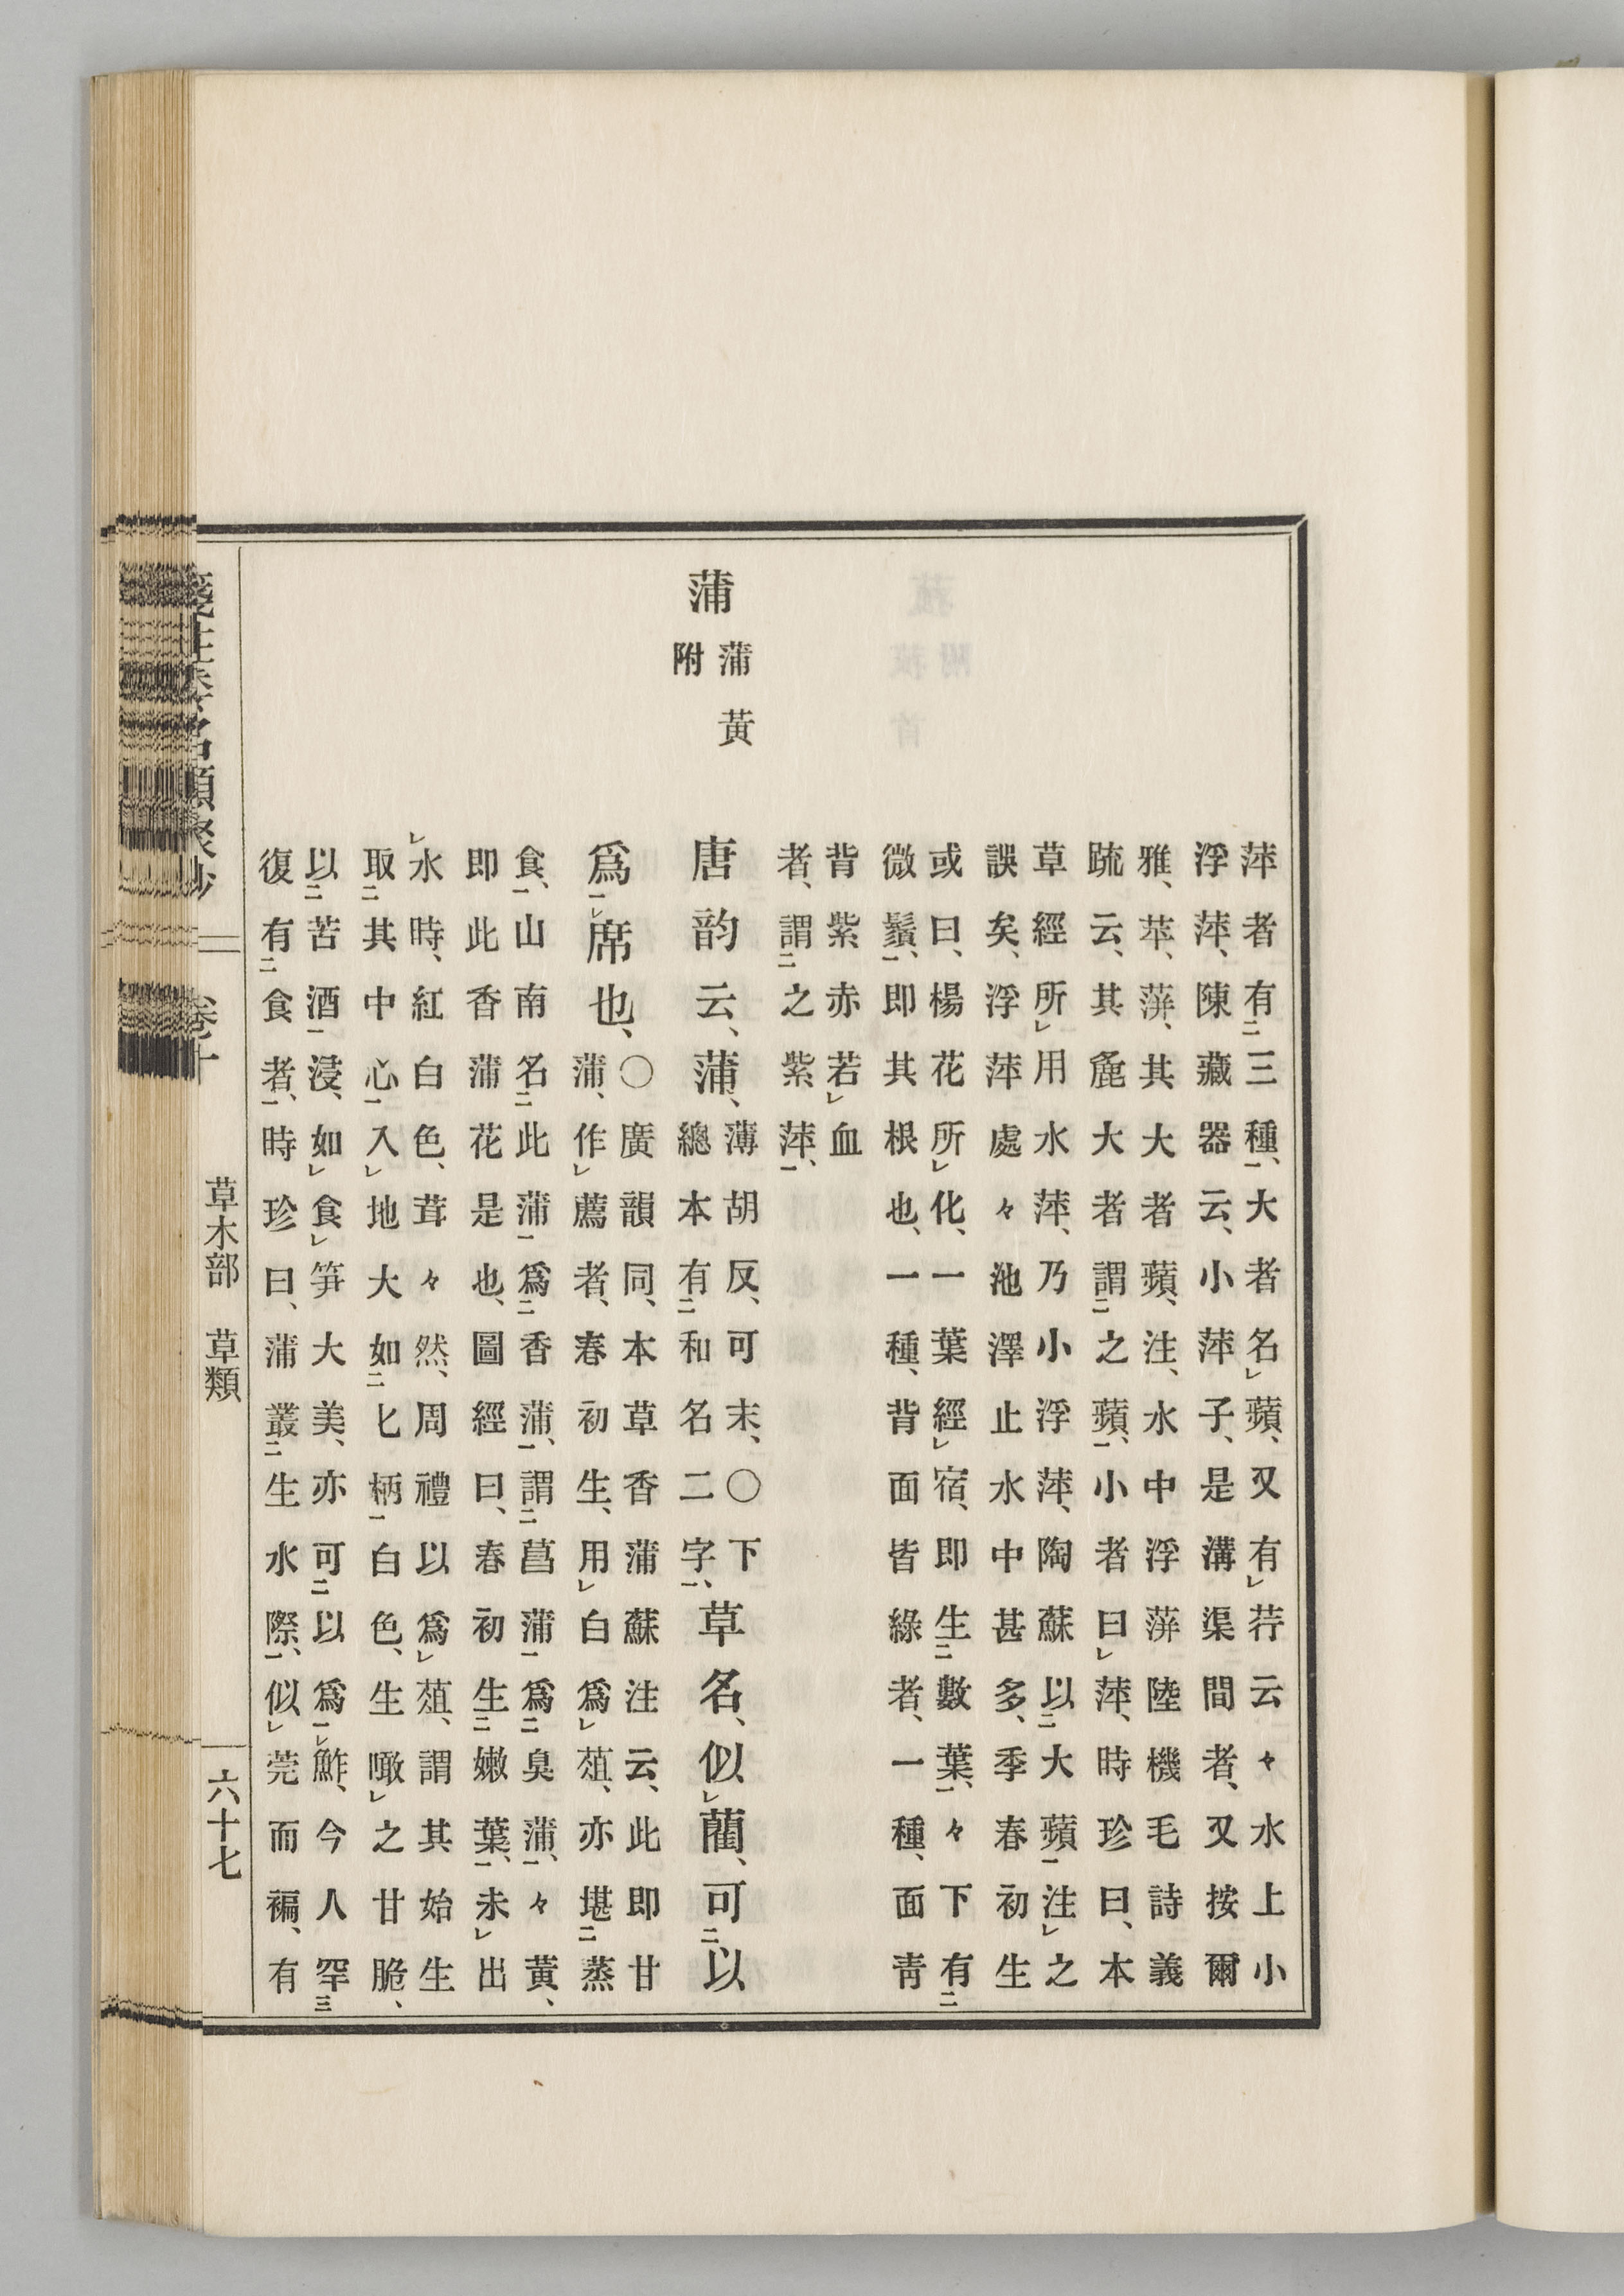 萍者有三種、大者名蘋、又有荇云々水上小
浮萍、陳藏器云、小萍子、是溝渠間者、又按爾
雅、苹、蓱、其大者蘋、注、水中浮蓱陸機毛詩義
䟽云、其麁大者謂之蘋、小者曰萍、時珍曰、本
草經所用水萍、乃小浮萍、陶蘇以大蘋注之
誤矣、浮萍處々池澤止水中甚多、季春初生
或曰、楊花所化、一葉經宿、即生數葉、々下有
微鬚、即其根也、一種、背面皆綠者、一種、面靑
背紫赤若血
者、謂之紫萍、
蒲
蒲黃
附
唐韵云、蒲、薄胡反、可末、〇下總本有和名二字、草名、似藺、可以
爲席也、〇廣韻同、本草香蒲蘇注云、此即甘
蒲、作薦者、春初生、用白爲葅、亦堪蒸
食、山南名此蒲爲香蒲、謂菖蒲爲臭蒲、々黃、
即此香蒲花是也、圖經曰、春初生嫩葉、未出
水時、紅白色、茸々然、周禮以爲葅、謂其始生
取其中心入地大如匕柄白色、生噉之甘脆、
以苦酒浸、如食笋大美、亦可以爲鮓、今人罕
復有食者、時珍曰、蒲叢生水際、似莞而褊、有
名類聚抄 卷十 草木部 草類 六十七